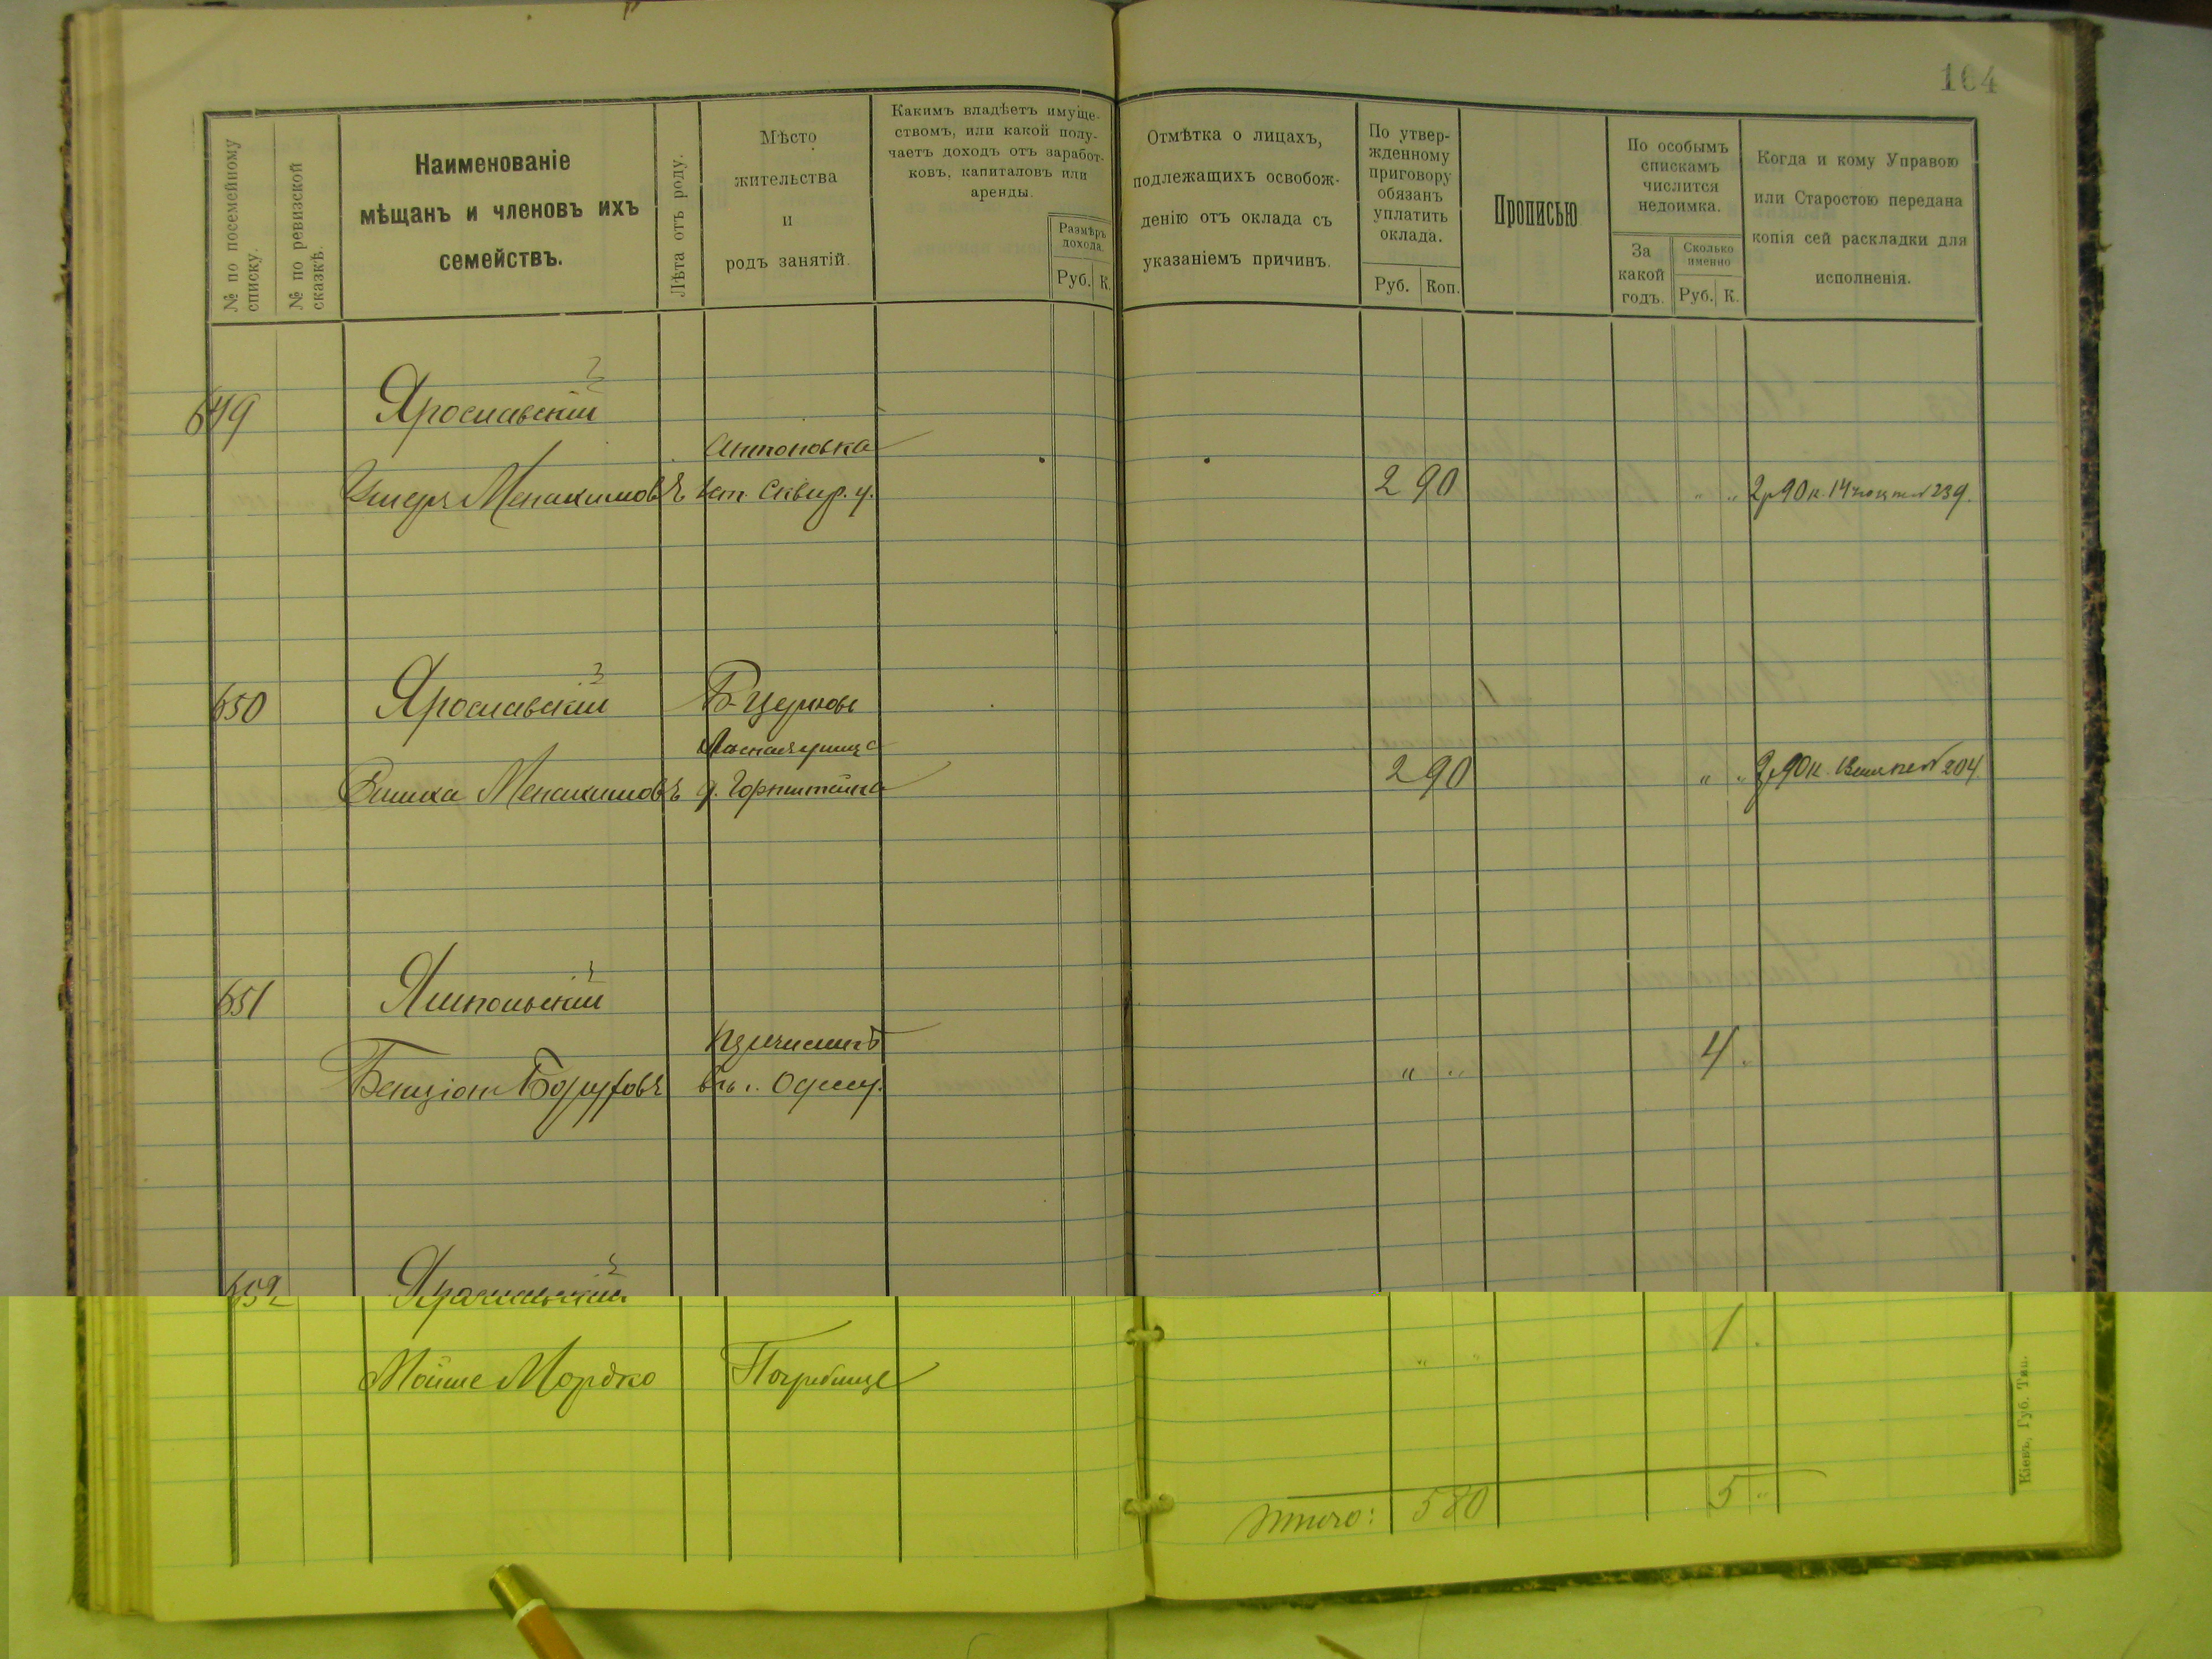 164
№ по посемейному
списку.
№ по ревизской
сказкѣ.
Наименованіе
мѣщанъ и членовъ ихъ
семействъ.
Лѣта отъ роду.
Мѣсто
жительства
и
родъ занятій.
Какимъ владѣетъ имуще-
ствомъ, или какой полу-
чаетъ доходъ отъ заработ-
ковъ, капиталовъ или
аренды.
Размѣръ
дохода.
Руб. К.
Отмѣтка о лицахъ,
подлежащихъ освобож-
денію отъ оклада съ
указаніемъ причинъ.
По утвер-
жденному
приговору
обязанъ
уплатить
оклада.
Руб. Коп.
Прописью
По особымъ
спискамъ
числится
недоимка.
За
какой
годъ.
Сколько
именно
Руб. К.
Когда и кому Управою
или Старостою передана
копія сей раскладки для
исполненія.
649 Ярославскій
Антоновка
Менахимовъ Сквир. у. 2 90 " " 2р 90к. 14 № 239.
650 Ярославскій Б-Церковь
Менахимовъ д. Горнштейна 2 90 " " 2р 90к. № 204
651 Ямпольскій
Бенціонъ Боруховъ Одессу. " " 4 .
652
Мойше Мордко Погребище " " 1 .
Итого: 5 80 5 "
Кіевъ, Губ. Тип.